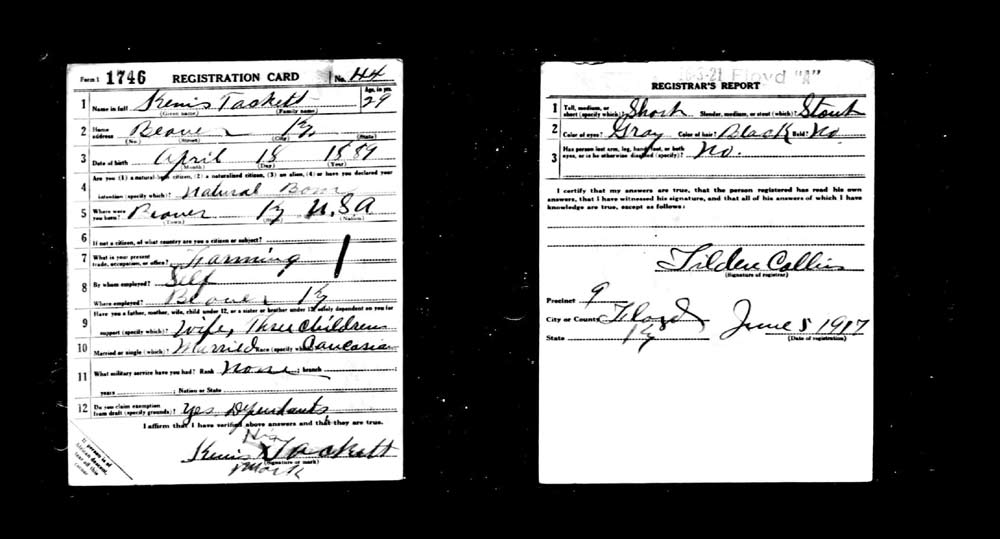 Form 1 1746 REGISTRATION CARD No. 44
1 Name in full Kenis Tackett Age, in yrs. 29
(Given name) (Family name)
2 Home address Beaver Ky
(No.) (Street) (City) (State)
3 Date of birth April 18 1889
(Month) (Day) (Year)
Are you (1) a natural-born citizen, (2) a naturalized citizen, (3) an alien, (4) or have you declared your
4 intention (specify which)? Natural Born
5 Where were you born? Beaver Ky U.S.A
(Town) (State) (Nation)
6 If not a citizen, of what country are you a citizen or subject?
7 What is your present trade, occupation, or office? Farming
8 By whom employed? Self
Where employed? Beaver Ky
Have you a father, mother, wife, child under 12, or a sister or brother under 12, solely dependent on you for
9 support (specify which)? Wife, Three Children
10 Married or single (which)? Married Race (specify which)? Caucasian
11 What military service have you had? Rank None ; branch ;
years ; Nation or State
12 Do you claim exemption from draft (specify grounds)? Yes Dependants
I affirm that I have verified above answers and that they are true.
His
Kenis X Tackett
(Signature or mark)
Mark
If person is of
African descent,
tear off this
corner
16-3-21 Floyd "A"
REGISTRAR'S REPORT
1 Tall, medium, or short (specify which)? Short Slender, medium, or stout (which)? Stout
2 Color of eyes? Gray Color of hair? Black Bald? No
3 Has person lost arm, leg, hand, foot, or both eyes, or is he otherwise disabled (specify)? No.
I certify that my answers are true, that the person registered has read his own
answers, that I have witnessed his signature, and that all of his answers of which I have
knowledge are true, except as follows:
Tilden Collins
(Signature of registrar)
Precinct 9
City or County Floyd
State Ky
June 5 1917
(Date of registration)